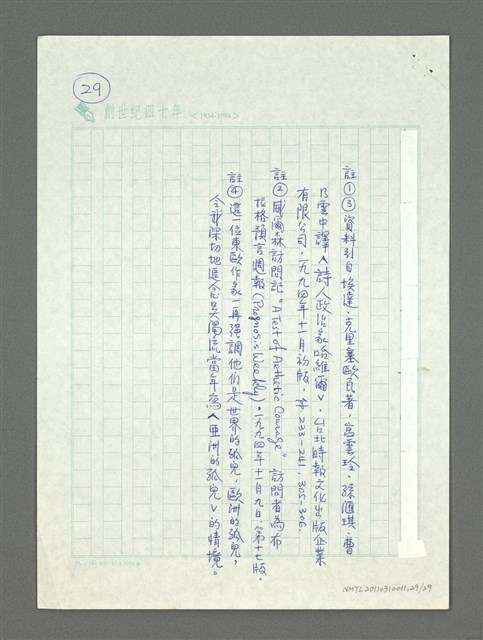 29
創世紀四十年 <1954-1994>
註①③資料引自埃達.克里塞歐伐著,宮雲玲、孫滙琪、曹
乃雲中譯《詩人政治家哈維爾》,台北時報文化出版企業
有限公司,一九九四年十一月初版,233-241.305-306.
註②威爾森訪問記"A Test of Aethetic Courage" 訪問者為布
拉格預言週報(Prognosis Weekly),一九九四年十一月九日.第十七版。
註④這一位東歐作家一再强調他們是世界的孤兒,歐洲的孤兒,
令我深切地追念吳濁流當年寫《亞洲的孤兒》的情境。
NMTL20110310011,29/29